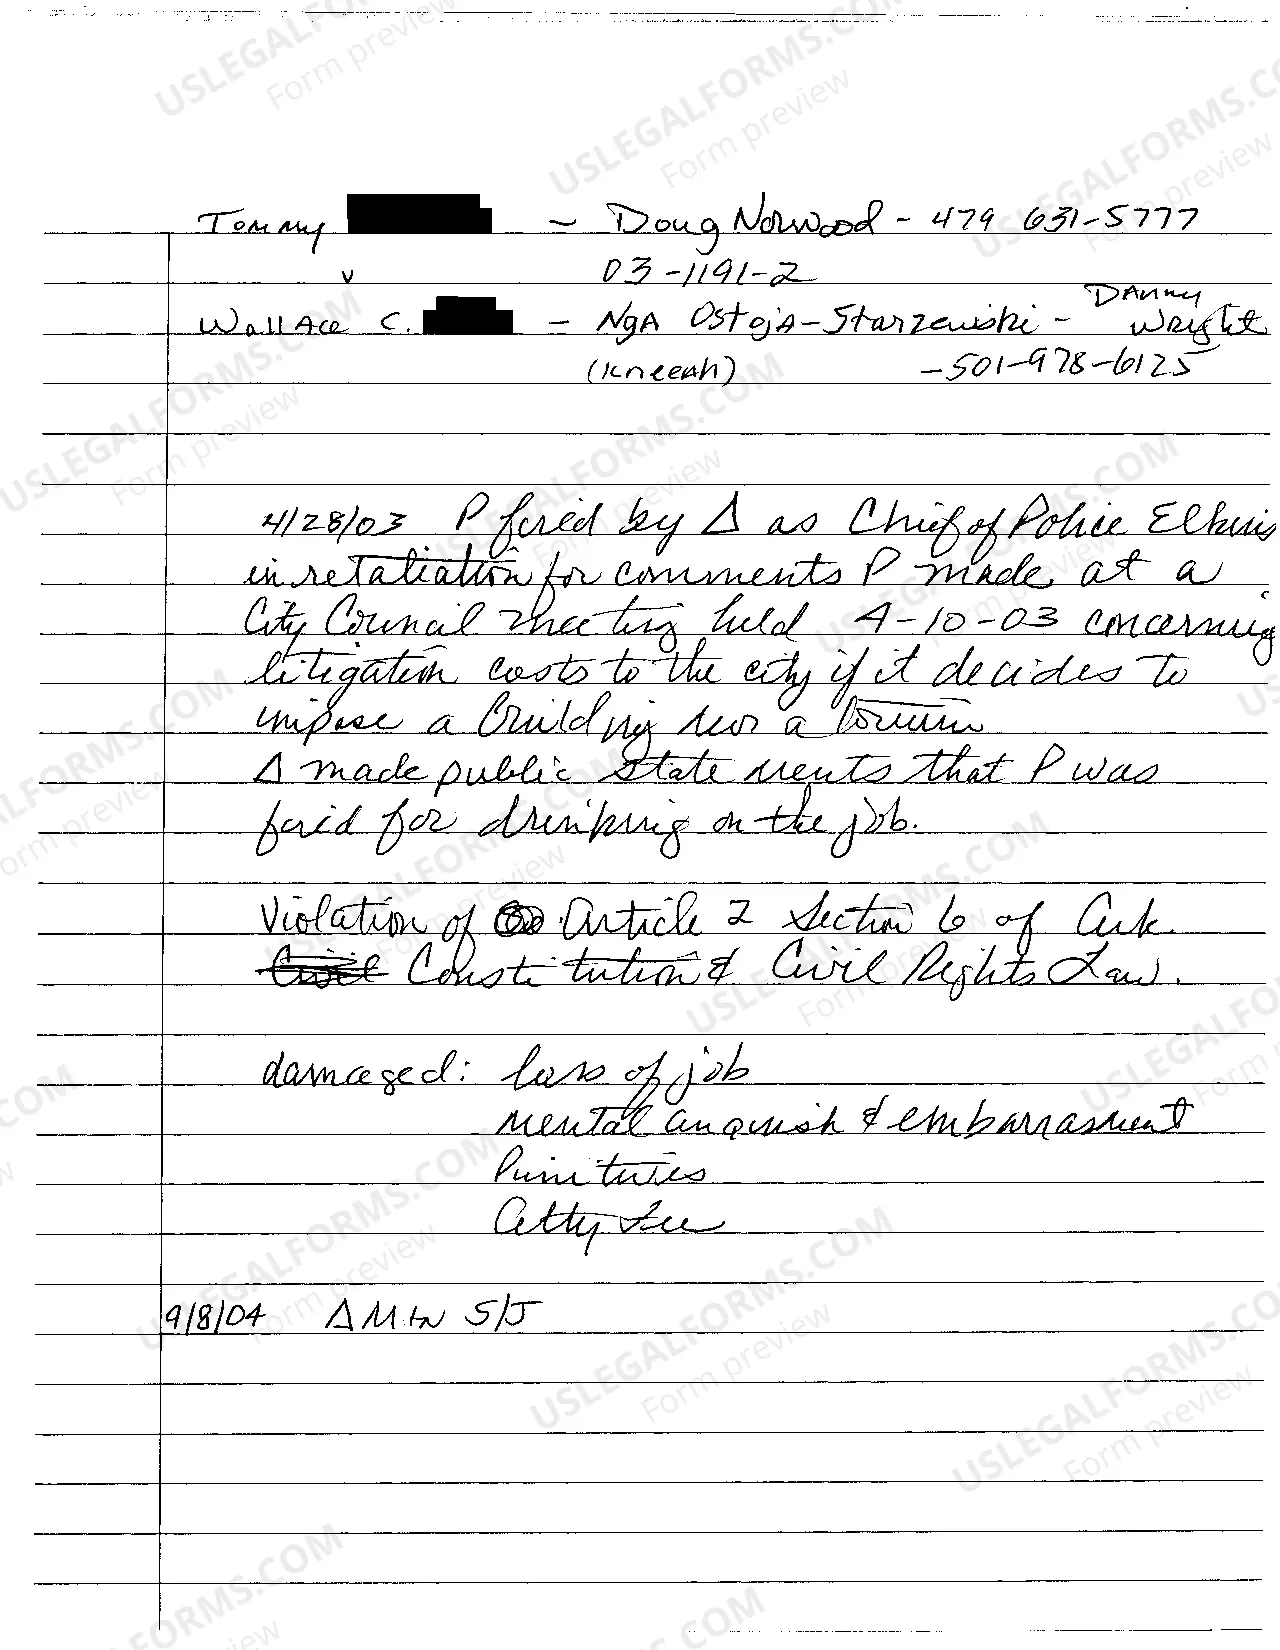 Tommy - Doug Norwood - 479 631-5777
v 03-1191-2
Wallace C. - NgA OstojA-Starzewski - DAnny Wright
(Kneeah) -501-978-6125
4/28/03 P fired by Δ as Chief of Police Elkins
in retaliation for comments P made at a
City Council meeting held 4-10-03 concerning
litigation costs to the city if it decides to
impose a building moratorium
Δ made public statements that P was
fired for drinking on the job.
Violation of Article 2 Section 6 of Ark.
Constitution & Civil Rights Law.
damaged: loss of job
mental anguish & embarrassment
Punitives
Atty Fee
9/8/04 Δ Mtn S/J
USLEGALFORMS.COM
Form preview